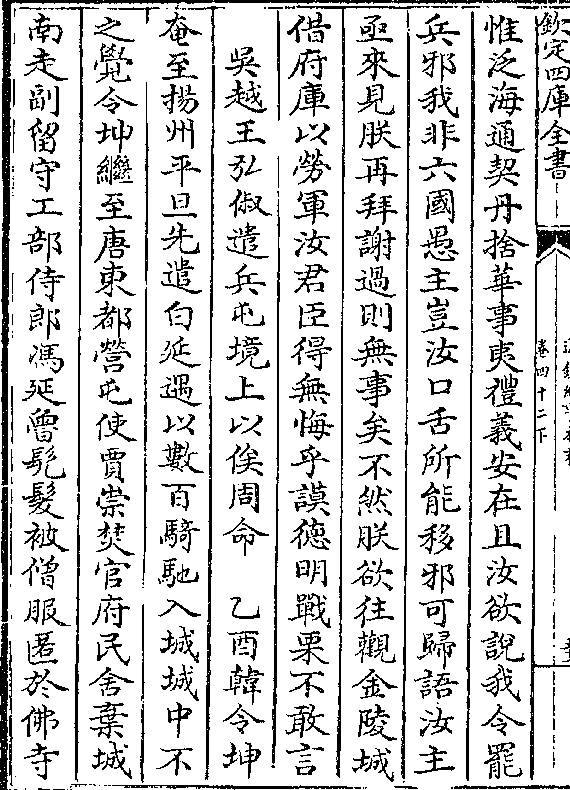 欽定四庫全書
卷四十二下
惟泛海通契丹捨華事夷禮義安在且汝欲說我令罷
兵邪我非六國愚主豈汝口舌所能移邪可歸語汝主
亟來見朕再拜謝過則無事矣不然朕欲往觀金陵城
借府庫以勞軍汝君臣得無悔乎謨德明戰栗不敢言
吳越王弘俶遣兵屯境上以俟周命 乙酉韓令坤
奄至揚州平旦先遣白延遇以數百騎馳入城城中不
之覺令坤繼至唐東都營屯使賈崇焚官府民舍棄城
南走副留守工部侍郎馮延魯髡髮被僧服匿於佛寺